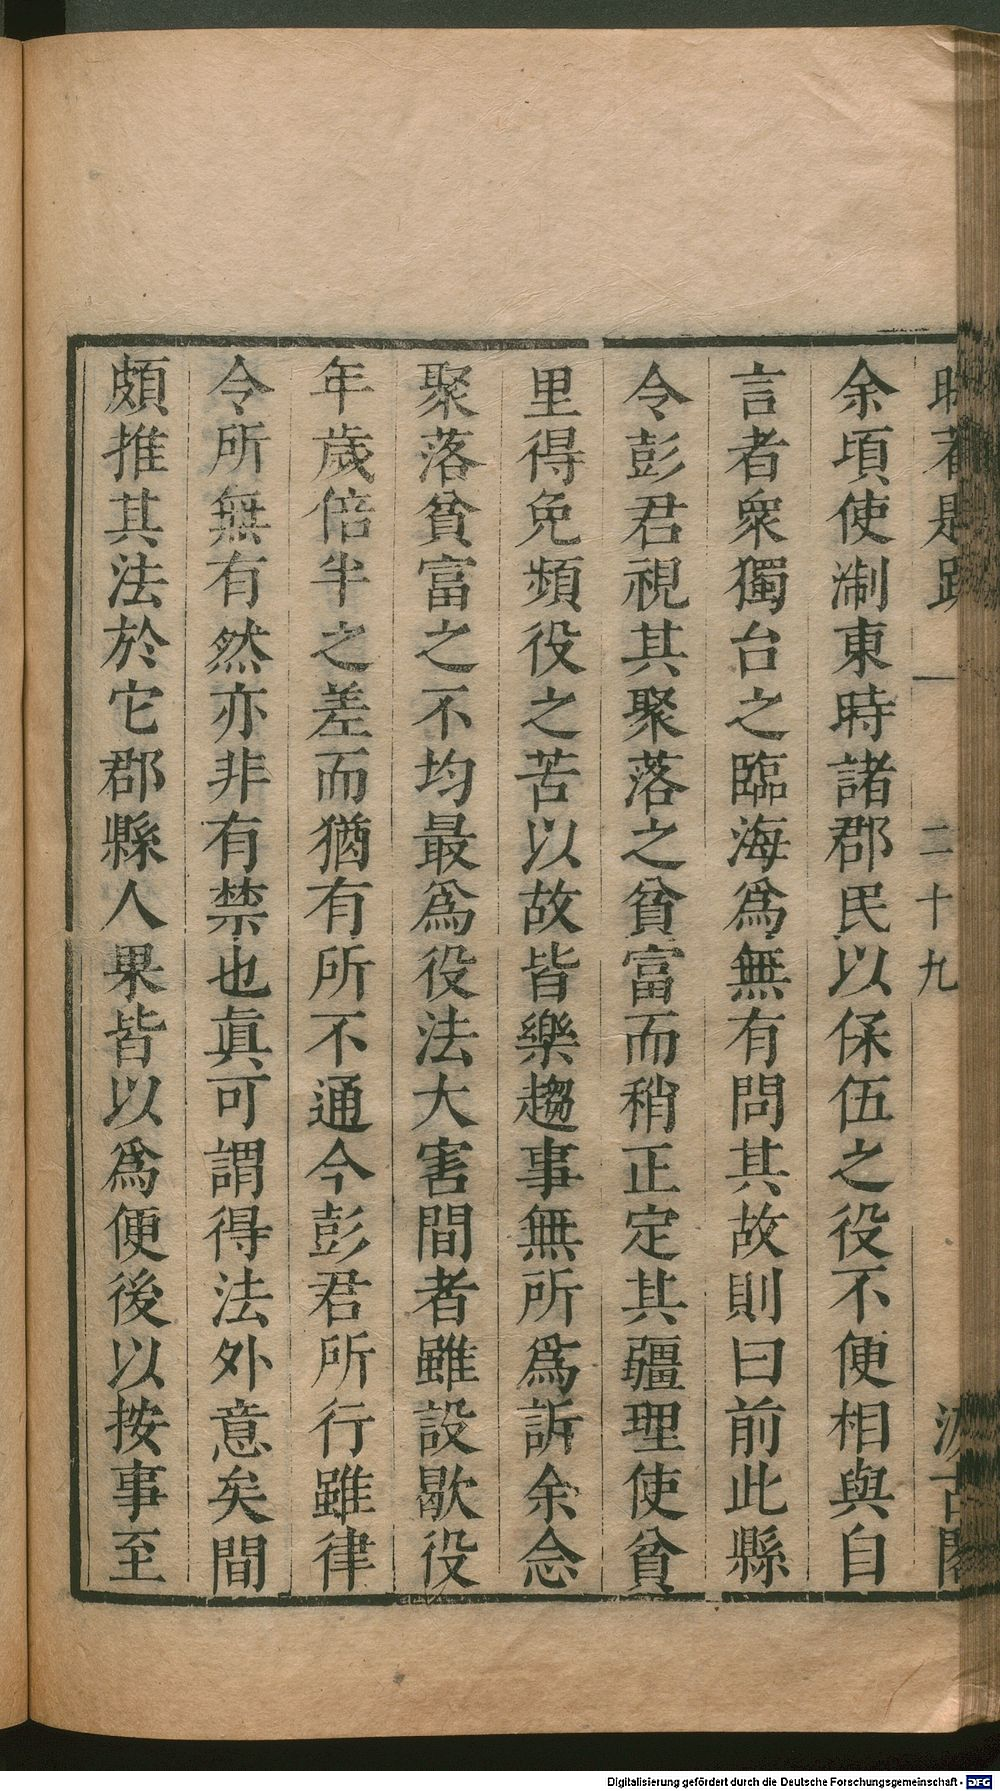 余頃使淛東時諸郡民以保伍之役不便相與自
言者衆獨台之臨海爲無有問其故則曰前此縣
令彭君視其聚落之貧富而稍正定其疆理使貧
里得免頻役之苦以故皆樂趨事無所爲訴余念
聚落貧富之不均最爲役法大害間者雖設歇役
年歲倍半之差而猶有所不通今彭君所行雖律
令所無有然亦非有禁也眞可謂得法外意矣間
頗推其法於它郡縣人果皆以爲便後以按事至
一
二十九
汲古閣
Digitalisierung gefördert durch die Deutsche Forschungsgemeinschaft - DFG